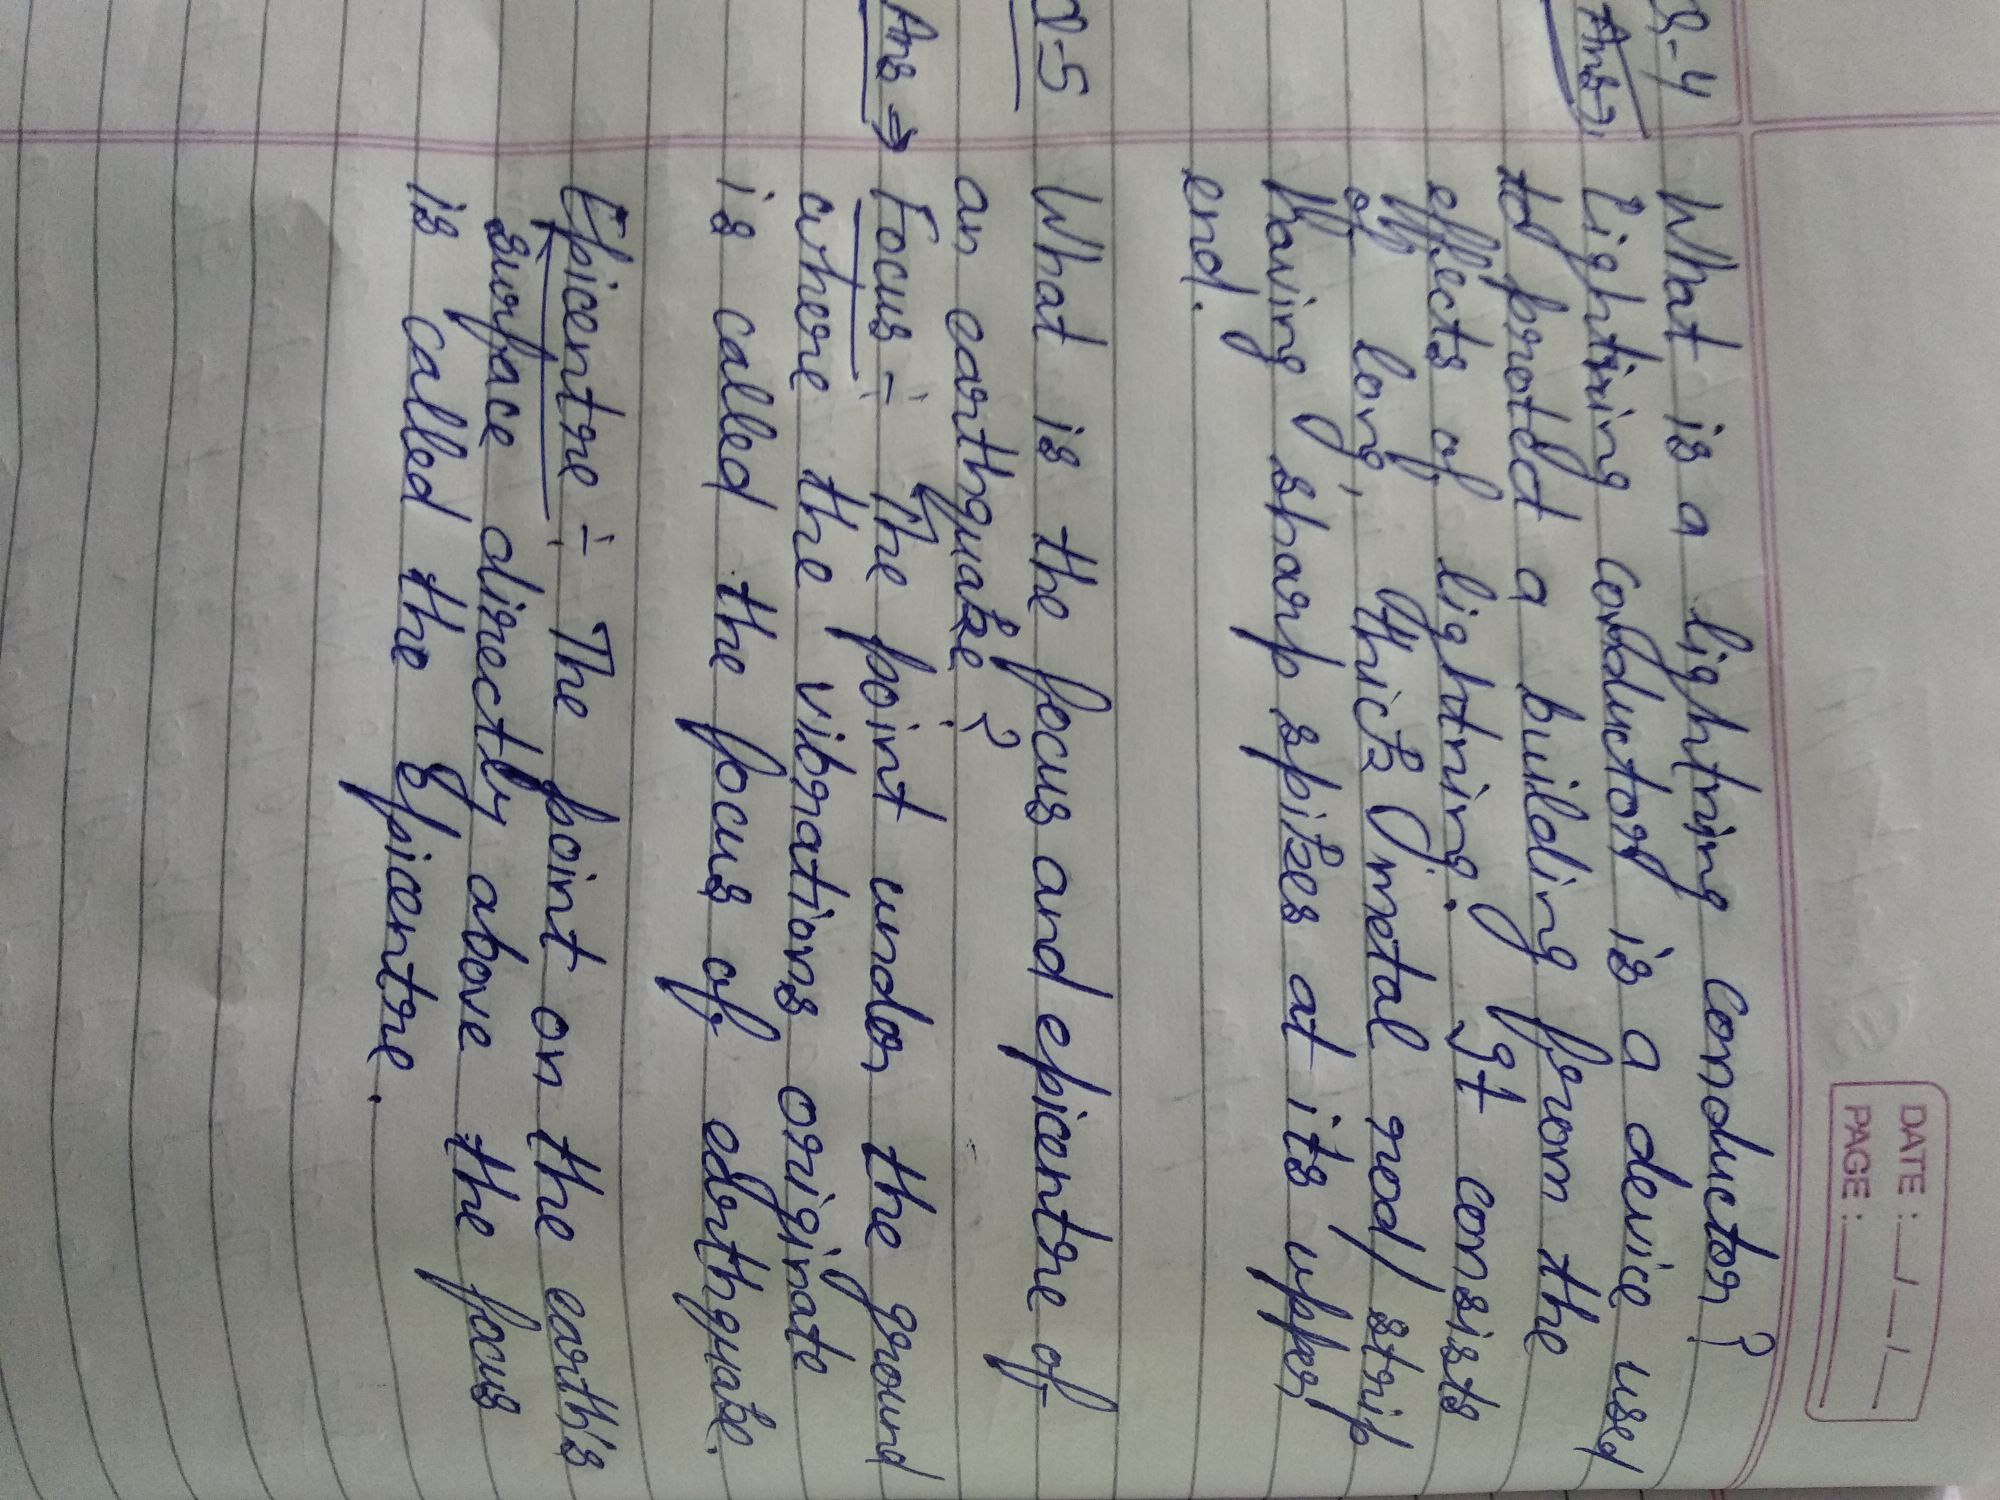 DATE : __/__/__
PAGE :
Q-4 What is a lightning conductor?
Ans→ Lightining conductor is a device used
to protect a building from the
effects of lightning. It consists
of long, thick metal rod/strip
having sharp spikes at its upper
end.
Q-5 What is the focus and epicentre of
an earthquake?
Ans⇒ Focus :- The point under the ground
where the vibrations originate
is called the focus of earthquake.
Epicentre :- The point on the earth's
surface directly above the focus
is called the epicentre.